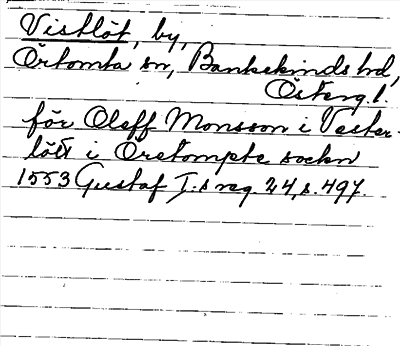 Vistlöt, by,
Örtomta sn, Bankekinds hd,
Österg. l.
för Oleff Monsson i Vester-
lött i Öretompte sockn
1553 Gustaf I:s reg. 24, s. 497.